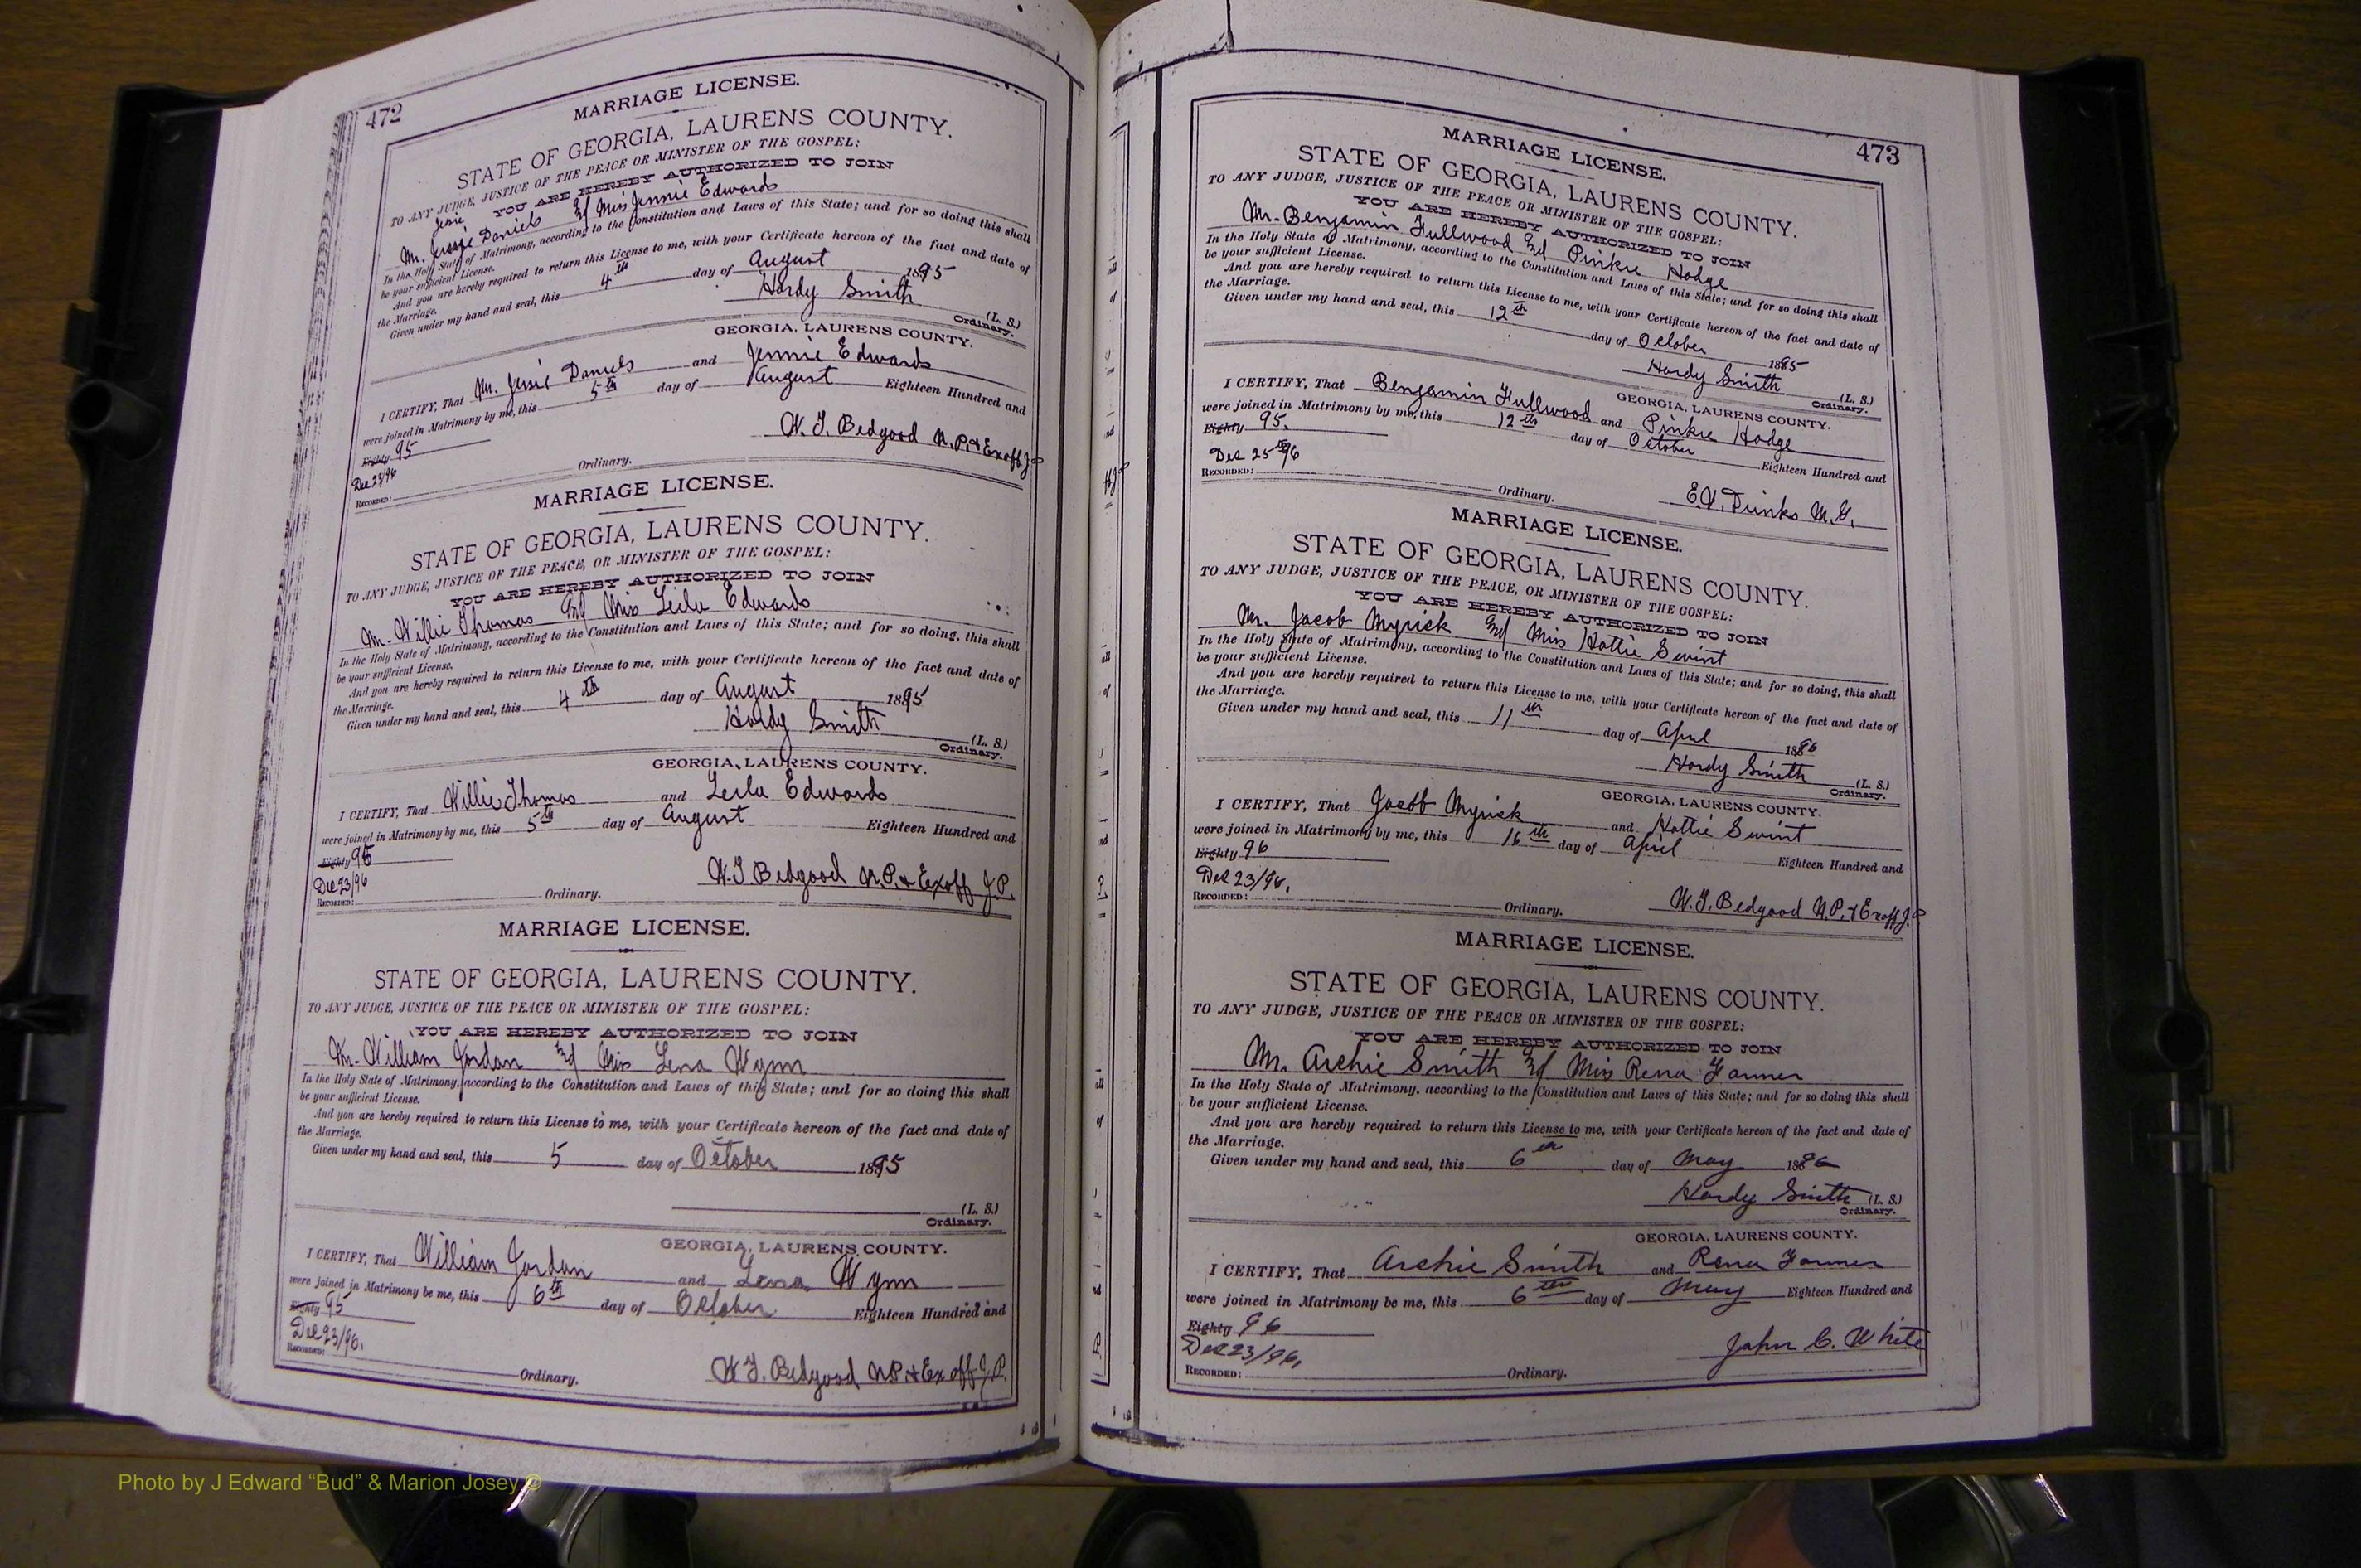 472
MARRIAGE LICENSE.
STATE OF GEORGIA, LAURENS COUNTY.
TO ANY JUDGE, JUSTICE OF THE PEACE OR MINISTER OF THE GOSPEL:
YOU ARE HEREBY AUTHORIZED TO JOIN
Mr. Jessie Daniels and Miss Jennie Edwards
In the Holy State of Matrimony, according to the Constitution and Laws of this State; and for so doing this shall
be your sufficient License.
And you are hereby required to return this License to me, with your Certificate hereon of the fact and date of
the Marriage.
Given under my hand and seal, this 4th day of August 1895
Hardy Smith
(L. S.)
Ordinary.
GEORGIA, LAURENS COUNTY.
I CERTIFY, That Mr. Jessie Daniels and Jennie Edwards
were joined in Matrimony by me, this 5th day of August Eighteen Hundred and
Eighty 95
W. J. Bedgood N.P. & Exoff J P
Dec 23/96
RECORDED: Ordinary.
MARRIAGE LICENSE.
STATE OF GEORGIA, LAURENS COUNTY.
TO ANY JUDGE, JUSTICE OF THE PEACE, OR MINISTER OF THE GOSPEL:
YOU ARE HEREBY AUTHORIZED TO JOIN
Mr. Willie Thomas and Miss Leila Edwards
In the Holy State of Matrimony, according to the Constitution and Laws of this State; and for so doing, this shall
be your sufficient License.
And you are hereby required to return this License to me, with your Certificate hereon of the fact and date of
the Marriage.
Given under my hand and seal, this 4th day of August 1895
Hardy Smith
(L. S.)
Ordinary.
GEORGIA, LAURENS COUNTY.
I CERTIFY, That Willie Thomas and Leila Edwards
were joined in Matrimony by me, this 5th day of August Eighteen Hundred and
Eighty 95
Dec 23/96
W. J. Bedgood N.P. & Exoff J.P.
RECORDED: Ordinary.
MARRIAGE LICENSE.
STATE OF GEORGIA, LAURENS COUNTY.
TO ANY JUDGE, JUSTICE OF THE PEACE OR MINISTER OF THE GOSPEL:
YOU ARE HEREBY AUTHORIZED TO JOIN
Mr. William Jordan and Miss Lena Wynn
In the Holy State of Matrimony, according to the Constitution and Laws of this State; and for so doing this shall
be your sufficient License.
And you are hereby required to return this License to me, with your Certificate hereon of the fact and date of
the Marriage.
Given under my hand and seal, this 5 day of October 1895
(L. S.)
Ordinary.
GEORGIA, LAURENS COUNTY.
I CERTIFY, That William Jordan and Lena Wynn
were joined in Matrimony be me, this 6th day of October Eighteen Hundred and
Eighty 95
Dec 23/96.
RECORDED:
W. J. Bedgood N.P. & Exoff J.P.
Ordinary.
473
MARRIAGE LICENSE.
STATE OF GEORGIA, LAURENS COUNTY.
TO ANY JUDGE, JUSTICE OF THE PEACE OR MINISTER OF THE GOSPEL:
YOU ARE HEREBY AUTHORIZED TO JOIN
Mr. Benjamin Fullwood and Pinkie Hodge
In the Holy State of Matrimony, according to the Constitution and Laws of this State; and for so doing this shall
be your sufficient License.
And you are hereby required to return this License to me, with your Certificate hereon of the fact and date of
the Marriage.
Given under my hand and seal, this 12th day of October 1895
Hardy Smith
(L. S.)
Ordinary.
GEORGIA, LAURENS COUNTY.
I CERTIFY, That Benjamin Fullwood and Pinkie Hodge
were joined in Matrimony by me, this 12th day of October Eighteen Hundred and
Eighty 95.
Dec 25th 96
RECORDED: Ordinary.
MARRIAGE LICENSE.
STATE OF GEORGIA, LAURENS COUNTY.
TO ANY JUDGE, JUSTICE OF THE PEACE, OR MINISTER OF THE GOSPEL:
YOU ARE HEREBY AUTHORIZED TO JOIN
Mr. Jacob Myrick and Miss Hattie Swint
In the Holy State of Matrimony, according to the Constitution and Laws of this State; and for so doing, this shall
be your sufficient License.
And you are hereby required to return this License to me, with your Certificate hereon of the fact and date of
the Marriage.
Given under my hand and seal, this 11th day of April 1896
Hardy Smith
(L. S.)
Ordinary.
GEORGIA, LAURENS COUNTY.
I CERTIFY, That Jacob Myrick and Hattie Swint
were joined in Matrimony by me, this 16th day of April Eighteen Hundred and
Eighty 96
Dec 23/96.
W. J. Bedgood N.P. & Exoff J.P
RECORDED: Ordinary.
MARRIAGE LICENSE.
STATE OF GEORGIA, LAURENS COUNTY.
TO ANY JUDGE, JUSTICE OF THE PEACE OR MINISTER OF THE GOSPEL:
YOU ARE HEREBY AUTHORIZED TO JOIN
Mr. Archie Smith and Miss Rena Farmer
In the Holy State of Matrimony, according to the Constitution and Laws of this State; and for so doing this shall
be your sufficient License.
And you are hereby required to return this License to me, with your Certificate hereon of the fact and date of
the Marriage.
Given under my hand and seal, this 6th day of May 1896
Hardy Smith (L. S.)
Ordinary.
GEORGIA, LAURENS COUNTY.
I CERTIFY, That Archie Smith and Rena Farmer
were joined in Matrimony be me, this 6th day of May Eighteen Hundred and
Eighty 96
Dec 23/96,
John C. White
RECORDED: Ordinary.
Photo by J Edward “Bud” & Marion Josey ©